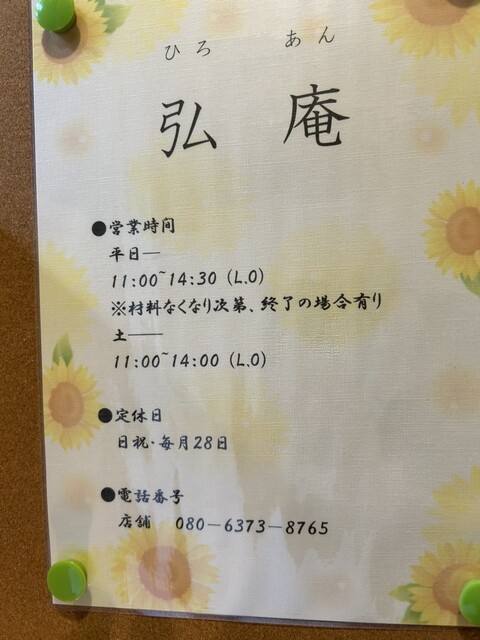 ひろ あん
弘 庵
●営業時間
平日―
11:00~14:30 (L.O)
※材料なくなり次第、終了の場合有り
土――
11:00~14:00 (L.O)
●定休日
日祝・毎月28日
●電話番号
店舗 080-6373-8765